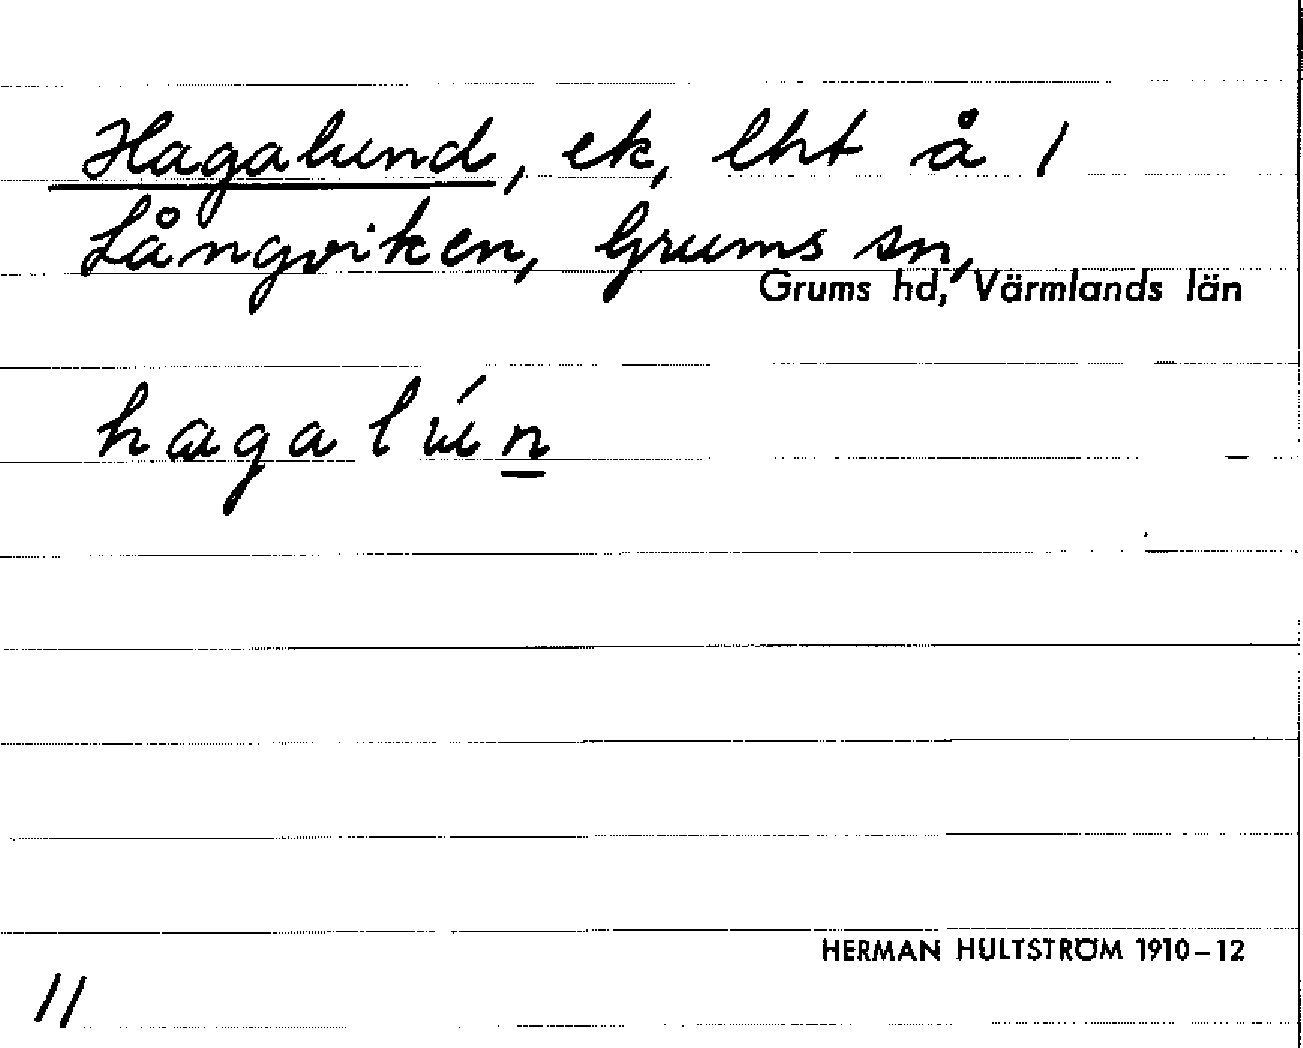 Hagalund, ek, lht å 1
Långviken, Grums sn,
Grums hd, Värmlands län
hagalún
HERMAN HULTSTRÖM 1910–12
11